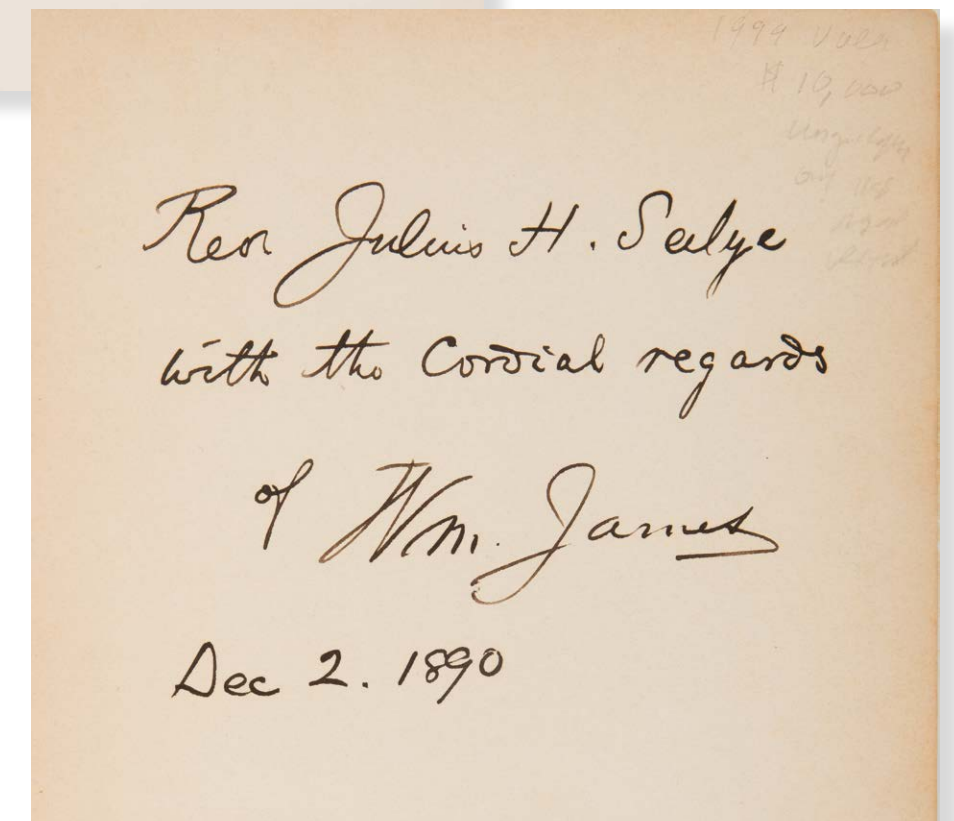 1999
$ 10,000
Rev Julius H. Seelye
with the Cordial regards
of Wm. James
Dec 2. 1890